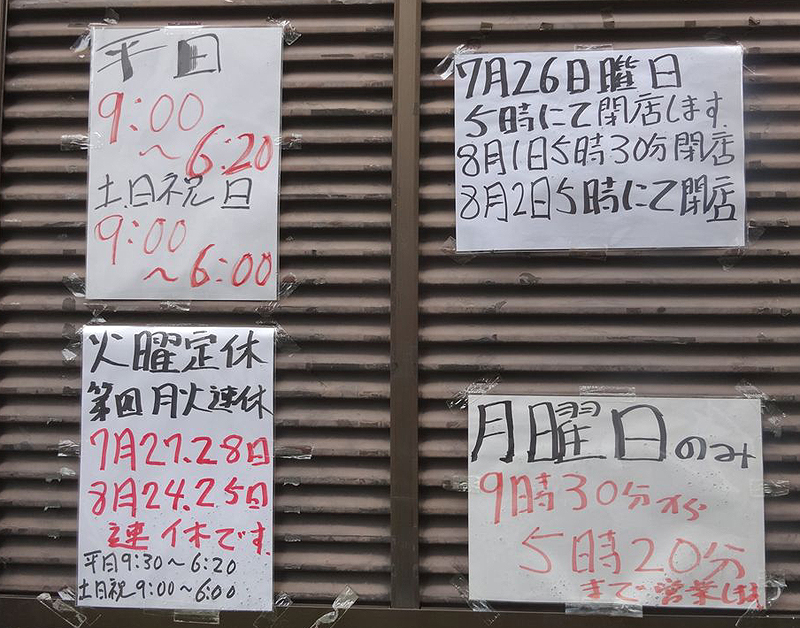 平日
9:00
～6:20
土.日祝日
9:00
～6:00
7月26日曜日
5時にて閉店します
8月1日5時30分閉店
8月2日5時にて閉店
火曜定休
第四月火連休
7月27.28日
8月24.25日
連休です.
平日9:30～6:20
土日祝9:00～6:00
月曜日のみ
9時30分から
5時20分
まで営業します